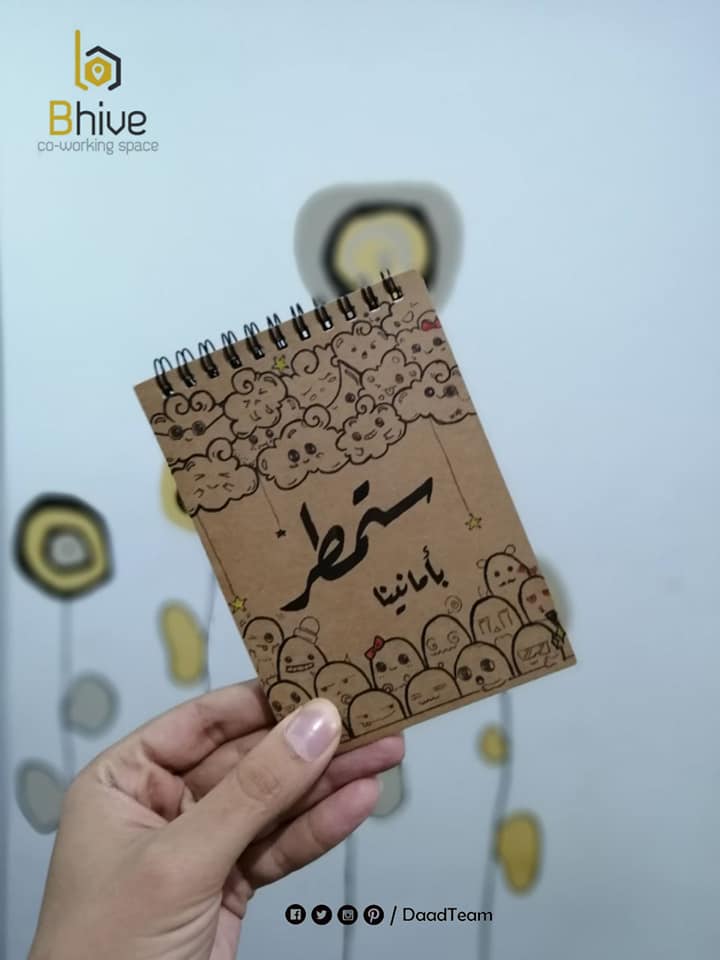 Bhive
co-working space
ستمطر
بأمانينا
/ DaadTeam